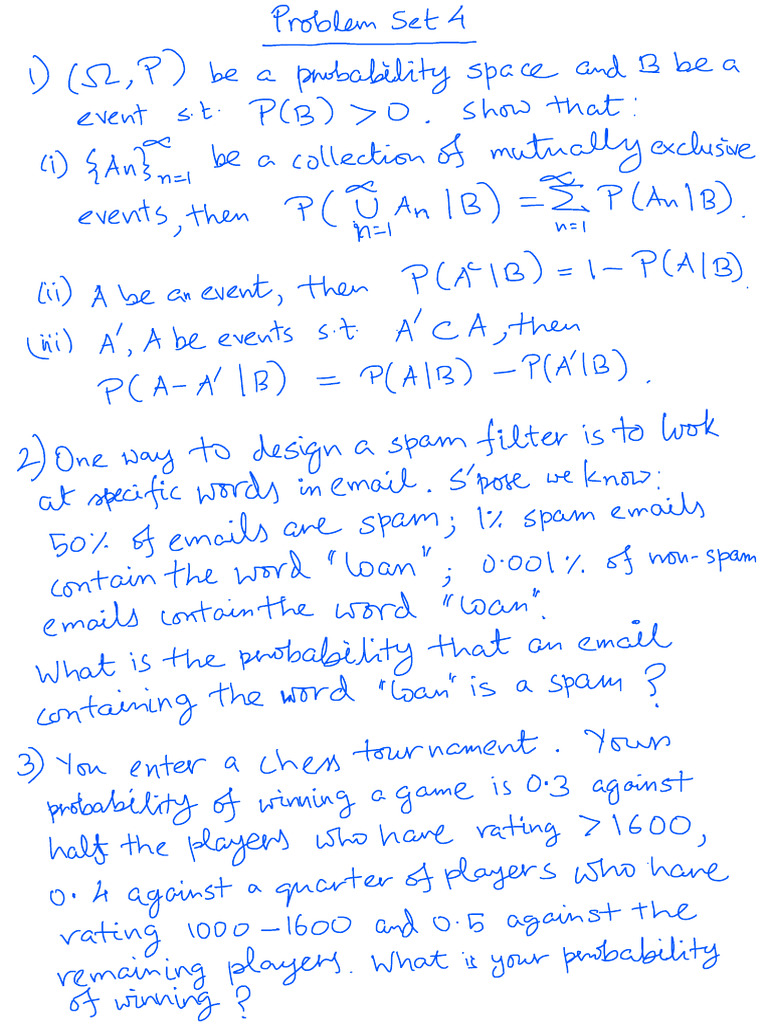 Problem Set 4
1) (Ω, P) be a probability space and B be a
event s.t. P(B) > 0. Show that:
(i) {An}∞n=1 be a collection of mutually exclusive
events, then P(∞∪n=1 An | B) = ∞Σn=1 P(An | B).
(ii) A be an event, then P(Aᶜ | B) = 1 - P(A | B).
(iii) A', A be events s.t. A' ⊂ A, then
P(A - A' | B) = P(A | B) - P(A' | B).
2) One way to design a spam filter is to look
at specific words in email. S'pose we know:
50% of emails are spam; 1% spam emails
contain the word "loan"; 0.001% of non-spam
emails contain the word "loan".
What is the probability that an email
containing the word "loan" is a spam?
3) You enter a chess tournament. Your
probability of winning a game is 0.3 against
half the players who have rating > 1600,
0.4 against a quarter of players who have
rating 1000 - 1600 and 0.5 against the
remaining players. What is your probability
of winning?